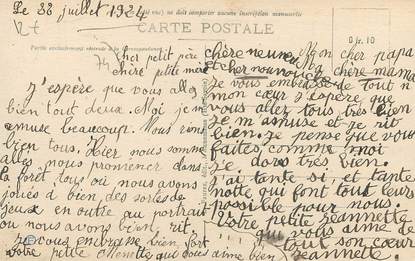 Le 28 juillet 1924
ne doit comporter aucune inscription manuscrite
CARTE POSTALE
Partie exclusivement réservée à la Correspondance
0 fr. 10
cher petit père
chère petite mère
J'espère que vous allez
bien tout deux. Moi je m'
amuse beaucoup. Nous rions
bien tous. Hier nous somme
allés nous promener dans
la forêt tous où nous avons
joués à bien des sortes de
jeux en outre au portrait
ou nous avons bien rit.
Je vous embrasse bien fort
votre petite Nenette qui vous aime bien
chère neuneu
et cher nounou
Mon cher papa
chère mama
Je vous embrasse de tout
mon cœur J'espère que
vous allez tous très bien
je m'amuse et je rit
bien. Je pense que vous
faites comme moi
je dors très bien.
J'ai tante si et tante
notte qui font tout leurs
possible pour nous.
Votre petite Jeannette
qui vous aime de
tout son cœur
Jeannette